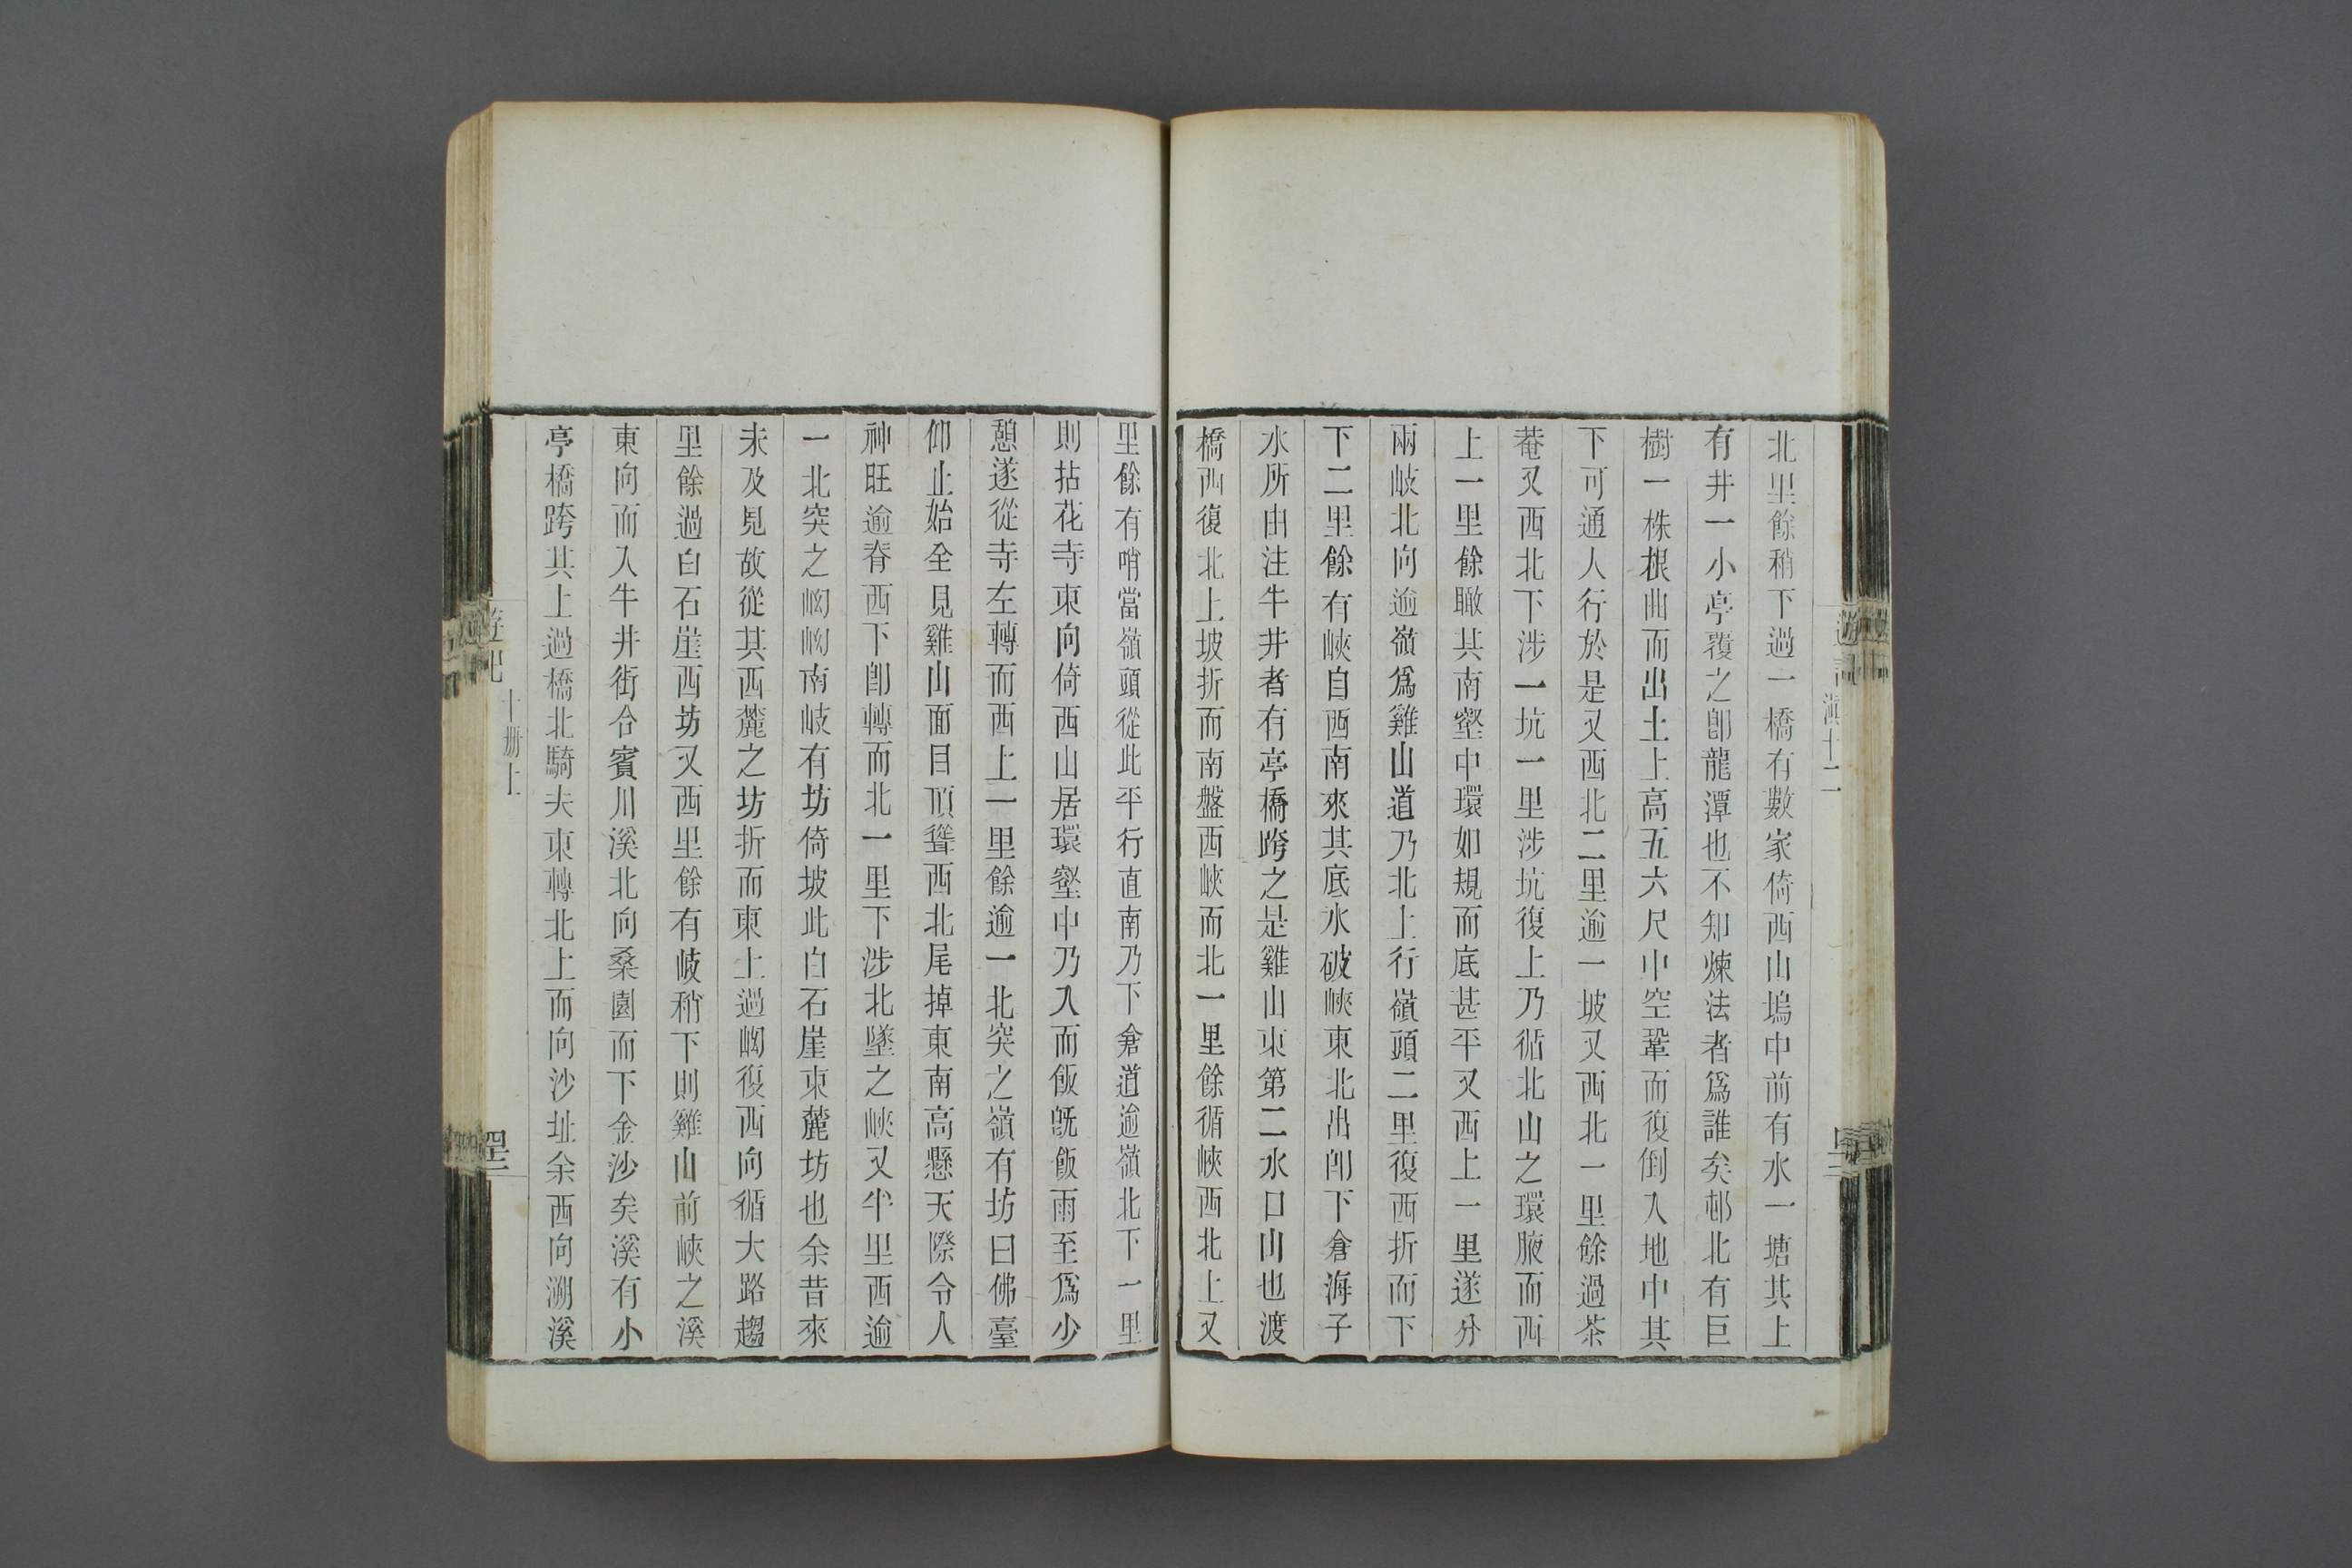 北里餘稍下過一橋有數家倚西山塢中前有水一塘其上
有井一小亭覆之卽龍潭也不知煉法者爲誰矣邨北有巨
樹一株根曲而出土上高五六尺中空鞏而復倒入地中其
下可通人行於是又西北二里逾一坡又西北一里餘過茶
菴又西北下涉一坑一里涉坑復上乃循北山之環腋而西
上一里餘瞰其南壑中環如規而底甚平又西上一里遂分
兩岐北向逾嶺爲雞山道乃北上行嶺頭二里復西折而下
下二里餘有峽自西南來其底水破峽東北出卽下倉海子
水所由注牛井者有亭橋跨之是雞山東第二水口山也渡
橋西復北上坡折而南盤西峽而北一里餘循峽西北上又
里餘有哨當嶺頭從此平行直南乃下倉道逾嶺北下一里
則拈花寺東向倚西山居環壑中乃入而飯旣飯雨至爲少
憩遂從寺左轉而西上一里餘逾一北突之嶺有坊曰佛臺
仰止始全見雞山面目頂聳西北尾掉東南高懸天際令人
神旺逾脊西下卽轉而北一里下涉北墜之峽又半里西逾
一北突之㘭㘭南岐有坊倚坡此白石崖東麓坊也余昔來
未及見故從其西麓之坊折而東上過㘭復西向循大路趨
里餘過白石崖西坊又西里餘有岐稍下則雞山前峽之溪
東向而入牛井街合賓川溪北向桑園而下金沙矣溪有小
亭橋跨其上過橋北騎夫東轉北上而向沙址余西向溯溪
遊記
滇十二
遊記
十册上